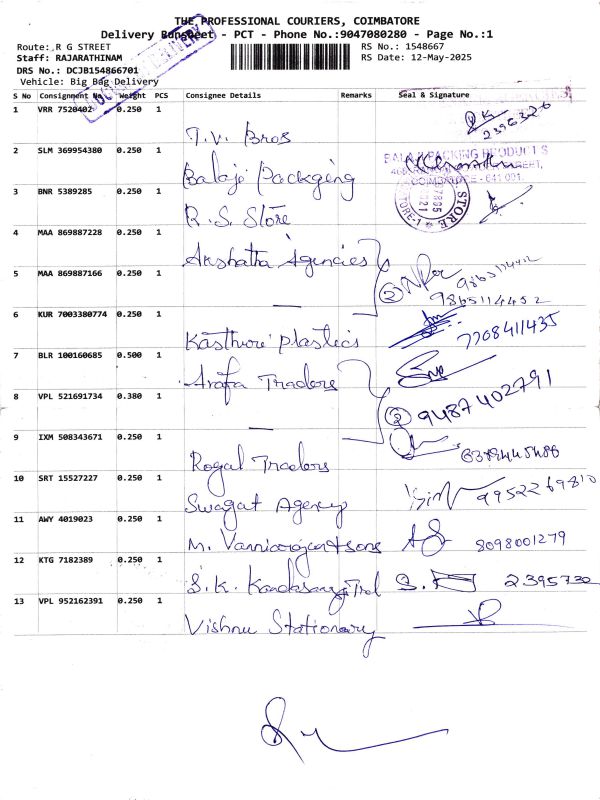 THE PROFESSIONAL COURIERS, COIMBATORE
Delivery Runsheet - PCT - Phone No.:9047080280 - Page No.:1
Route: R G STREET
RS No.: 1548667
Staff: RAJARATHINAM
RS Date: 12-May-2025
DRS No.: DCJB154866701
Vehicle: Big Bag Delivery
S No Consignment No. Weight PCS Consignee Details Remarks Seal & Signature
1 VRR 7520402 0.250 1 T.V. Bros 2396326
2 SLM 369954380 0.250 1 Balaji Packging
BALAJI PACKING PRODUCTS
COIMBATORE - 641 001.
3 BNR 5389285 0.250 1 R.S. Store
STORE
4 MAA 869887228 0.250 1 Akshatha Agencies
5 MAA 869887166 0.250 1 — 2 9865114452
9865114452
6 KUR 7003380774 0.250 1 Kasthuri plastics 7708411435
7 BLR 100160685 0.500 1 Arafa Traders
8 VPL 521691734 0.380 1 — 2 9487402791
9 IXM 508343671 0.250 1 Royal Traders
10 SRT 15527227 0.250 1 Swagat Agency 9952269810
11 AWY 4019023 0.250 1 8098001279
12 KTG 7182389 0.250 1 2395730
13 VPL 952162391 0.250 1 Vishnu Stationary